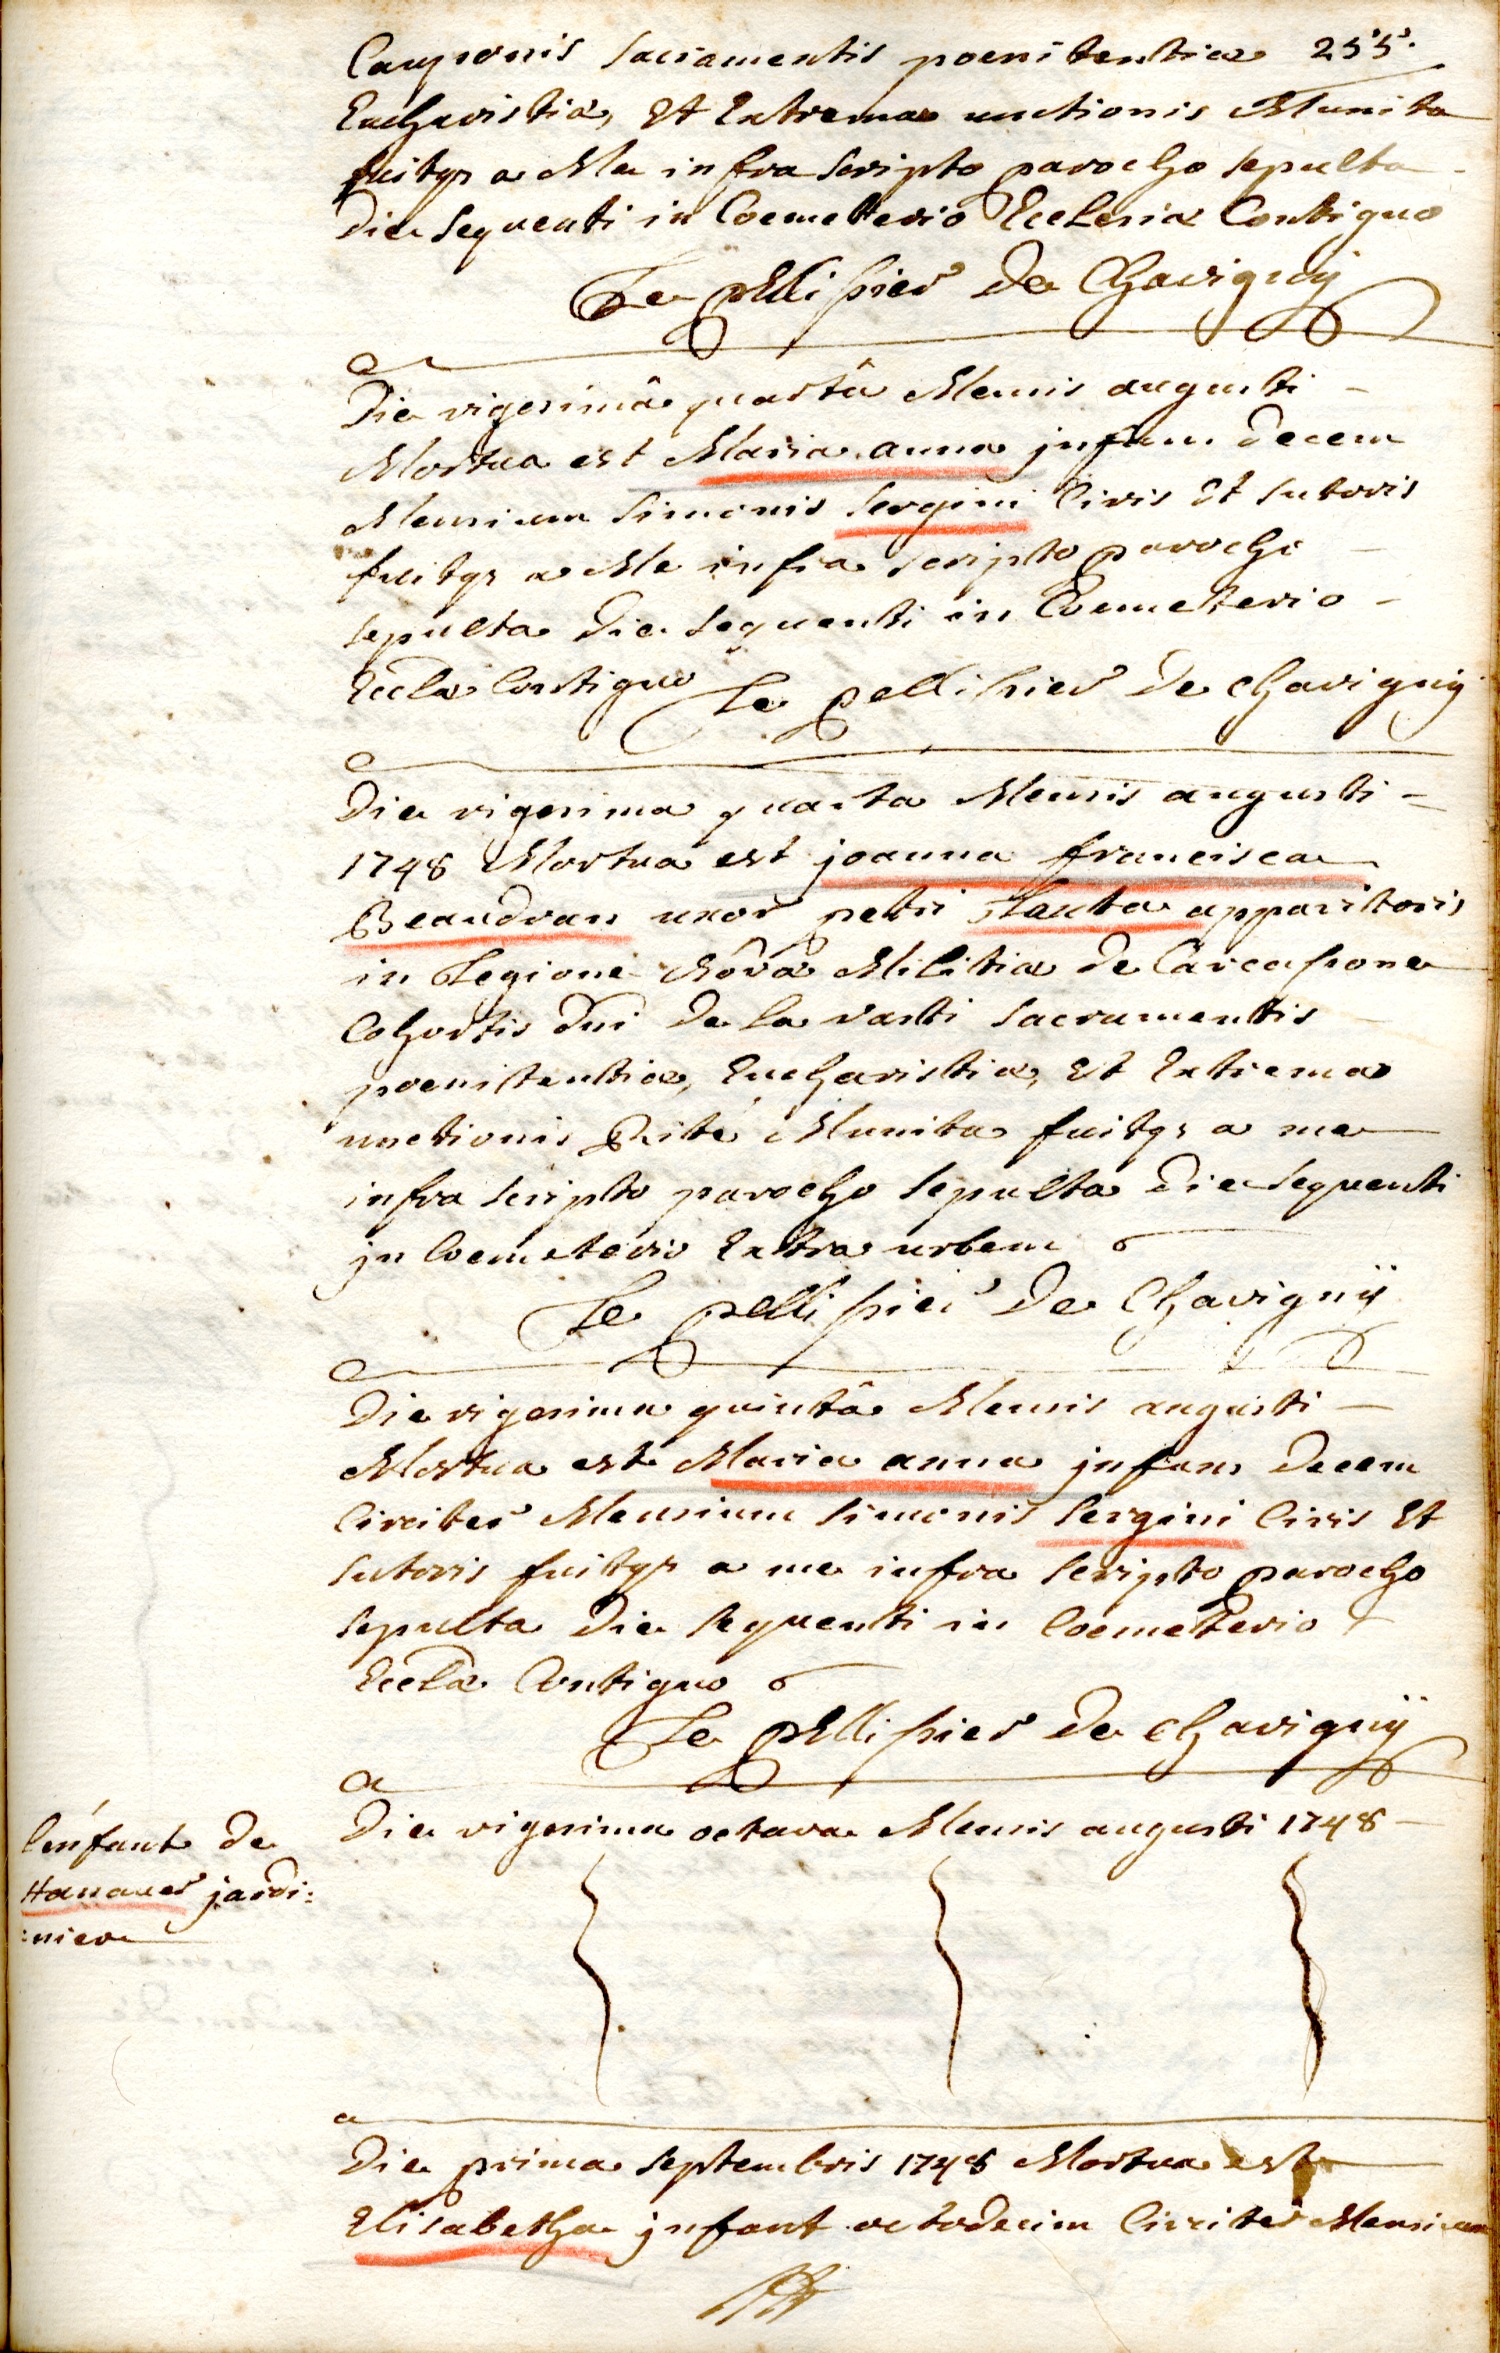 Cauponis sacramentis poenitentiæ 255.
Eucharistiæ, Et Extremæ unctionis Munita
fuitqs a Me infra scripto parocho sepulta
die sequenti in Coemeterio Ecclesiæ Contiguo
Le pellissier de Chavignÿ
Die vigesimâ quartâ Mensis augusti
Mortua est Maria anna jnfans decem
Mensium simonis sergini Civis Et sutoris
fuitqs a Me infra scripto parocho
sepulta die sequenti in Coemeterio
Eccłæ Contiguo Le pellissier de chavignÿ
Die vigesima quarta Mensis augusti
1748 Mortua est joanna francisca
Beaudran uxor petri apparitoris
in Legione Novæ Militiæ de Carcassone
Cohortis dni de la sacramentis
poenitentiæ, Eucharistiæ, Et Extremæ
unctionis Rité Munita fuitqs a me
infra scripto parocho sepulta die sequenti
jn Coemeterio Extra urbem
Le pellissier de Chavignÿ
Die vigesima quintâ Mensis augusti
Mortua est Maria anna jnfans decem
Circiter Mensium simonis sergini Civis Et
sutoris fuitqs a me infra scripto parocho
sepulta die sequenti in Coemeterio
Eccłæ Contiguo
Le pellissier de chavignÿ
l'enfant de
Hanauer jardi:
:nier
Die vigesima octava Mensis augusti 1748
Die prima septembris 1748 Mortua est
Elisabetha jnfant octodecim Circiter Mensium